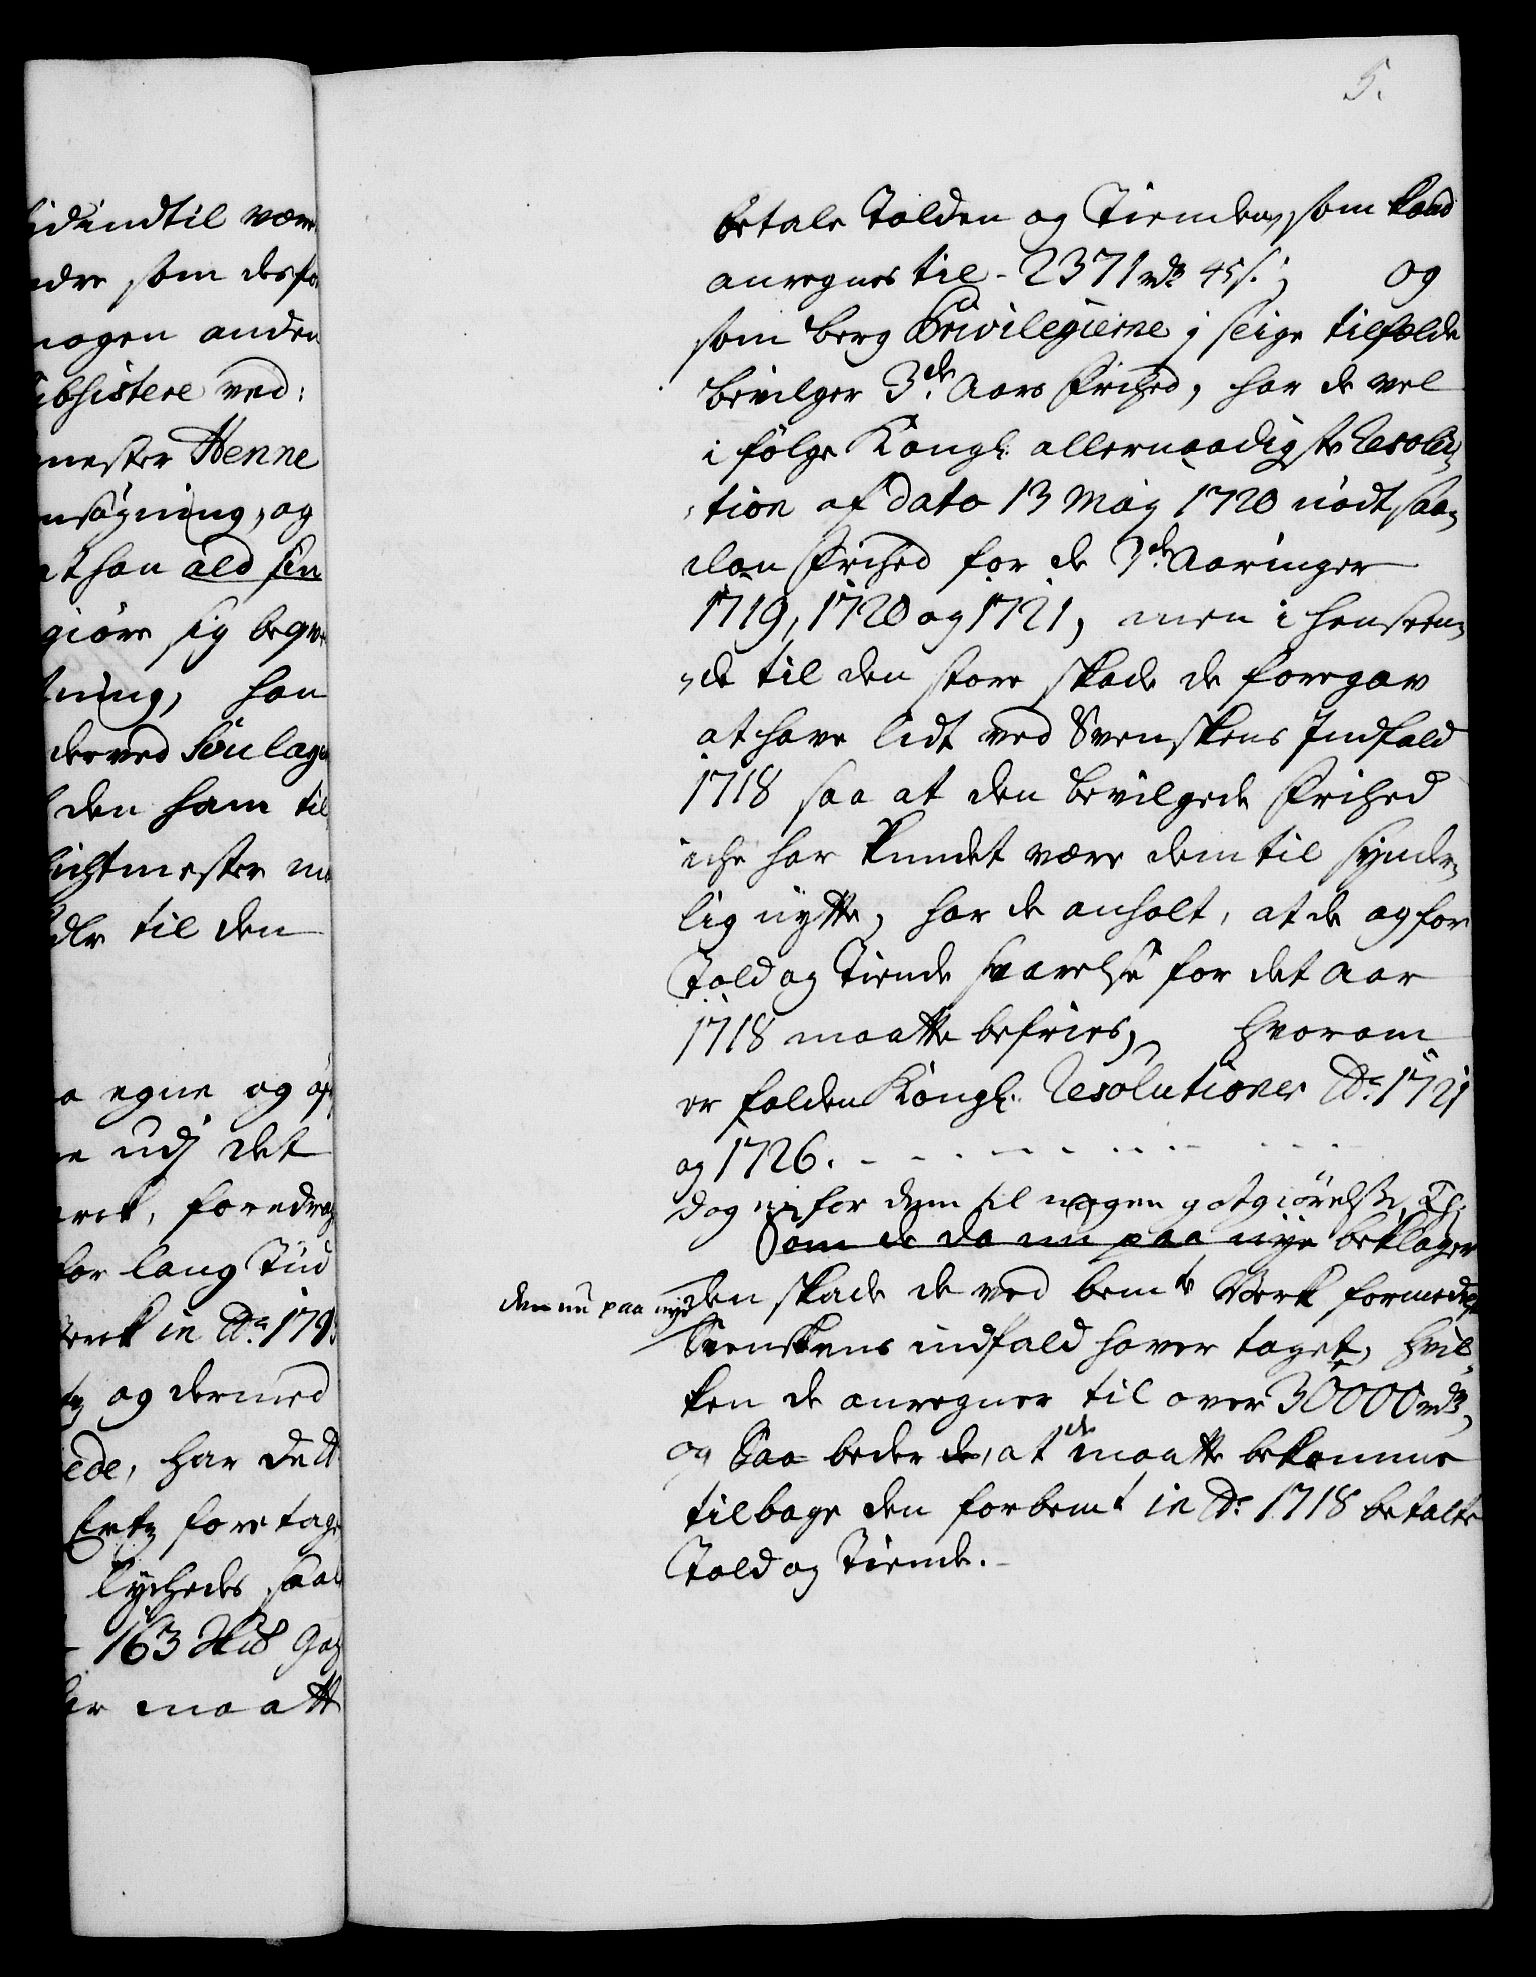 5.
idindtil være
som desfor
nogen anden
ubsistere ved:
mester Henne
nsøgning, og
at han ald sin
giøre sig beqve
ning, han
derved
den ham til
ichtmester
til den
egne og
udj det
foredrag
for lang Tiid
in Ao 179
og dermed
ede, har de
Ertz foretage
lychedes saa
163
maatte
betale Tolden og Tienden, som kand
anregnes til - 2371 rdr 45 s.; og
som berg Privilegierne j slige tilfælde
bevilger 3de Aars Frihed, har de vel
i følge Kongl: allernaadigste Resolu-
tion af dato 13 Maij 1720 nødt saa-
dan Frihed for de 3de Aaringer
1719, 1720 og 1721, men i henseen-
de til den store skade de foregav
at have lidt ved Svenskens Indfald
1718 saa at den bevilgede Frihed
iche har kundet være dem til synder-
lig nytte, har de anholt, at de og for
Told og Tiende svarelse for det aar
1718 maatte befries, hvorom
er falden Kongl. Resolutioner Ao 1721
og 1726.
dog ei for dem til nogen gotgiørelse,
Som de da nu paa nye beklager
den skade de ved bemte Værk formedelst
den nu paa nye
Svenskens indfald haver taget, hvil-
ken de anregner til over 30000 rdr,
og Saa beder de, at de maatte bekomme
tilbage den forbemt in Ao 1718 betalte
Told og Tiende.